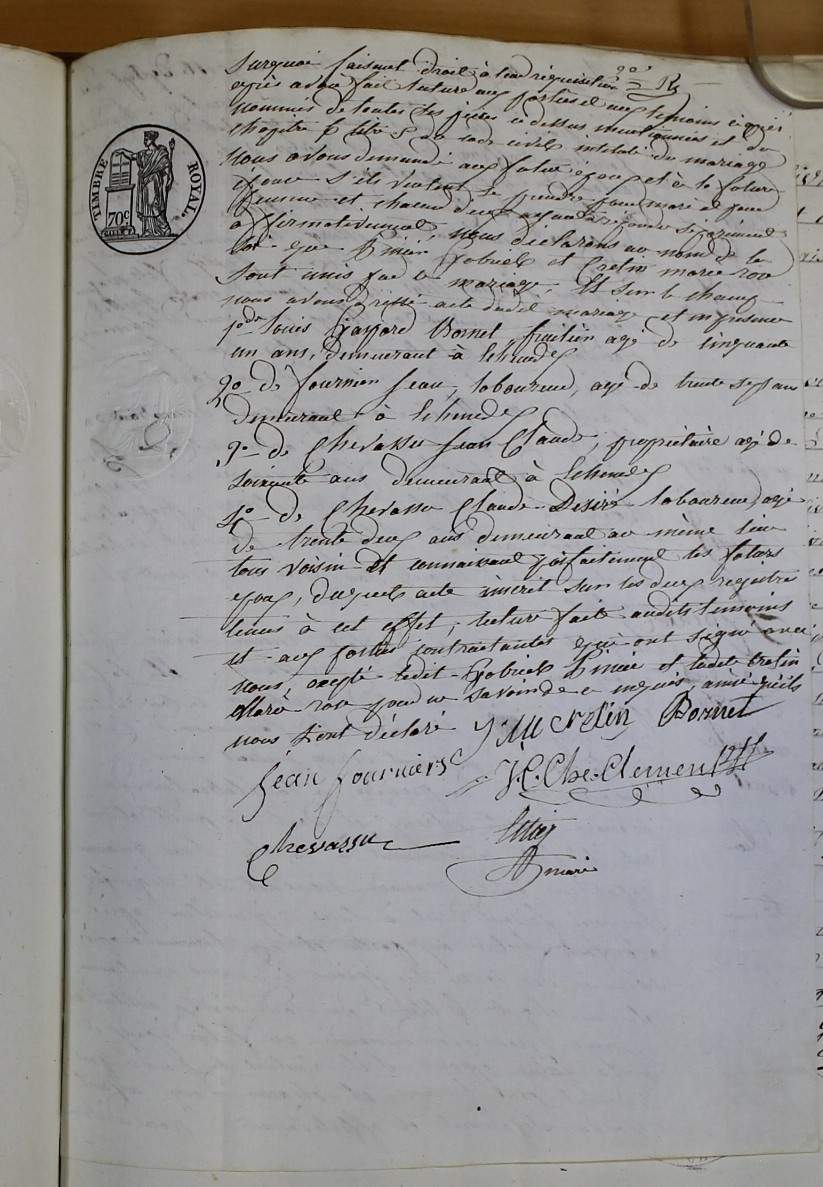 TIMBRE ROYAL.
70c
Surquoi faisant droit à leur réquisition
après avoir fait lecture aux parties et aux témoins ci après
nommés de toutes les pièces ci dessus mentionnées et du
chapitre 6 titre 5 du code civil intitulé du mariage
nous avons demandé au futur époux et à la future
épouse s'ils veulent se prendre pour mari et pour
femme et chacun d'eux ayant répondu séparément
affirmativement, nous déclarons au nom de la
loi que Gabriel et Cretin marie rose
sont unis par le mariage. Et sur le champ
nous avons dressé acte dudit mariage et en présence
1o de Louis Gaspard Bonnet, fruitier agé de cinquante
un ans, demeurant à
2o de fournier Jean, laboureur, agé de trente sept ans
demeurant à
3o de Chevassu Jean Claude, propriétaire agé de
soixante ans demeurant à
4o de Chevassu Claude Désiré laboureur, agé
de trente deux ans demeurant au même lieu
tous voisin et connaissant parfaitement les futurs
epoux, duquel acte inscrit sur les deux registre
tenus à cet effet, lecture faite audits temoins
et aux parties contractantes qui ont signé avec
nous, excepté ledit Gabriel et ladite Cretin
Marie rose pour ne savoir de ce enquis ainsi qu'ils
nous l'ont déclaré J M cretin Bonnet
Jean fournier J. C. Che. Clement
Chevassu
maire